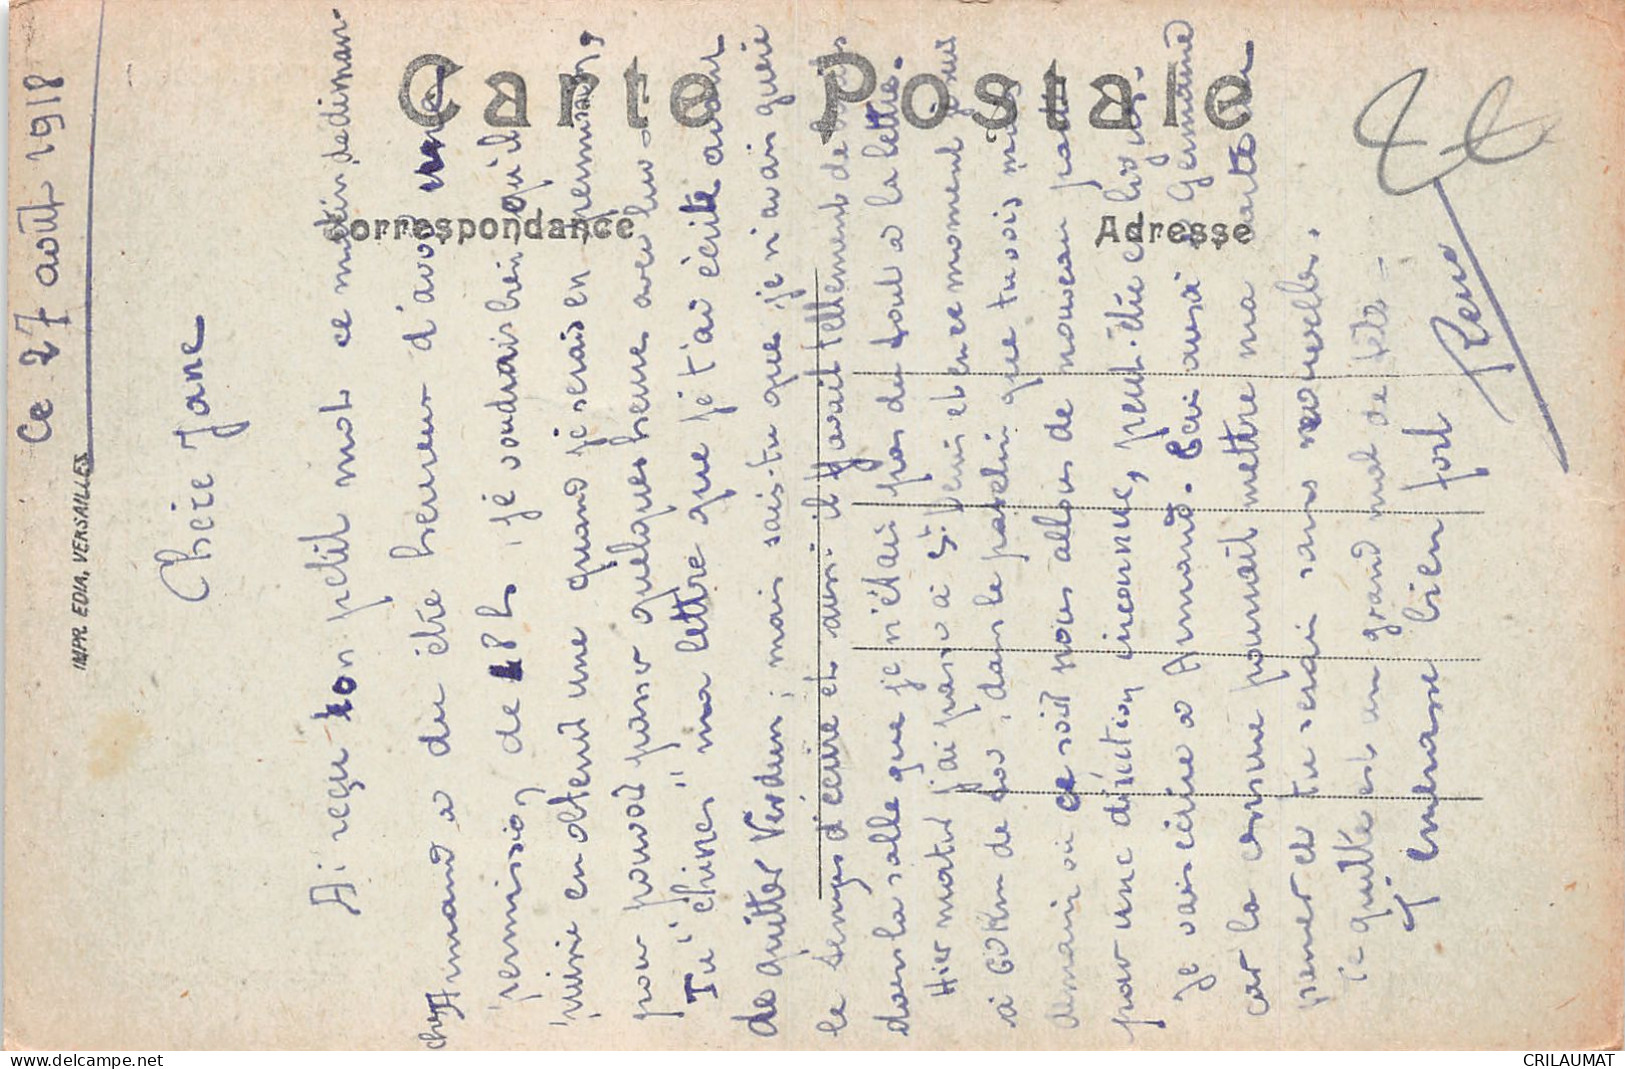 Carte Postale
Correspondance
Adresse
IMPR. EDIA, VERSAILLES
Ce 27 août 1918
Chère Jane
Ai reçu ton petit mot ce matin
Armand a du être heureux d'avoir une
permission de h, je voudrais bien qu'il
puisse en obtenir une quand je serais en permission,
pour pouvoir passer quelques heures avec lui
Tu "chines" ma lettre que je t'ai écrite avant
de quitter Verdun; mais sais-tu que je n'avais guère
le temps d'écrire et aussi il y avait tellement de
dans la salle que je n'étais pas du tout a la lettre.
Hier matin j'ai passé à St. et en ce moment je suis
à km de, dans le patelin que tu vois mais
demain ou ce soir nous allons de nouveau
par une direction inconnue, peut-être
Je vais écrire a Armand. Germaine
car la censure pourrait mettre ma carte
panier et tu serais sans nouvelles.
Je quitte et un grand mal de tête =
T'embrasse bien fort
René
CRILAUMAT
www.delcampe.net